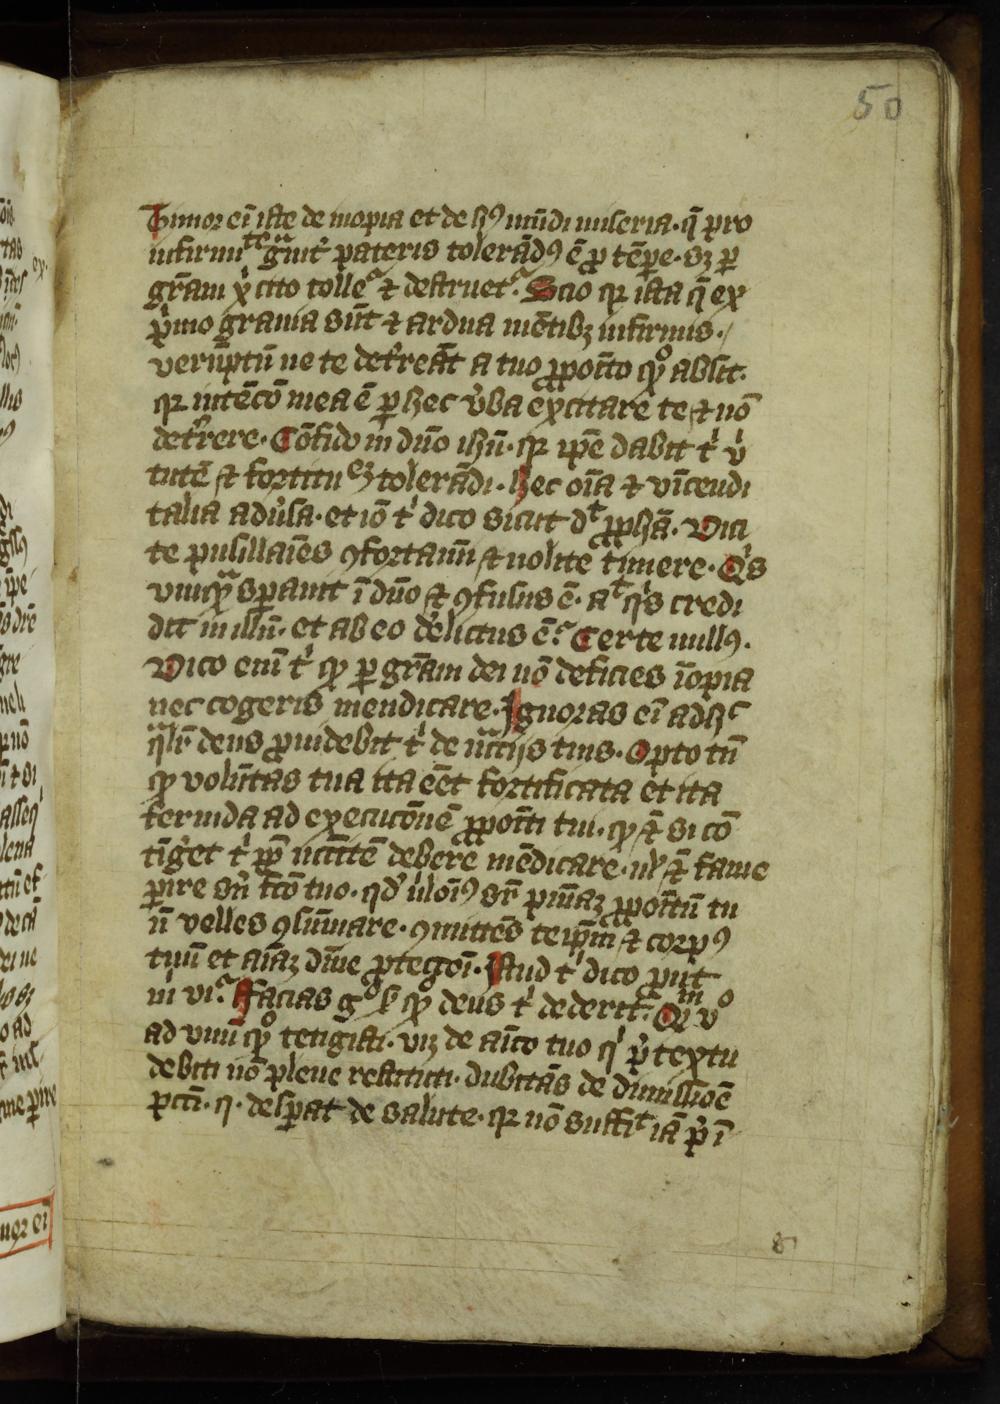 50
Timor ei᷑ iste de inopia et de hꝰ mūdi miseria · q̄ pro
infirmi᷑te grauit᷑ pateris tolerādꝰ ē ꝓ tēpe · sꝫ ꝑ
grām xͥ cito tolle᷑ ⁊ destruet᷑ · Scio qꝛ ista q̄ ex
pͥmo grauia sūt ⁊ ardua mētibꝫ infirmis ·
verūptū ne te det᷑reāt a tuo ꝓpoīto qͦ absit ·
qꝛ intēcō mea ē ꝑ hec v᷑ba excitare te ⁊ nō
det᷑rere · Cōfido in dn̄o ihū · qꝛ ip̄e dabit tͥ vͥ
tutē ⁊ fortitu eꝫ tolerādi · hec oīa ⁊ vīcendi
talia adu᷑sa · et iō tͥ dico sicut dᵗ ꝓphā · Dici
te pusillaīes ꝯfortamī ⁊ nolite timere · Qͥs
vnqᷓ sꝑauit ī dn̄o ⁊ ꝯfusus ē · aᵗ qͥs credi
dit in illū · et ab eo de᷑lictus ē · Certe nullꝰ ·
Dico enī tͥ qͥ ꝑ grām dei nō deficies īopia
nec cogeris mendicare · Ignoras ei᷑ adhᶜ
qͣlr̄ deus ꝓuidebit tͥ de nc̄cijs tuis · Opto tn̄
qͥ volūtas tua ita eēt fortificata et ita
feruida ad execucōnē ꝓpoīti tui · qͥ ⁊ si cō
tīg᷑et tͥ ꝓp̄ nc̄citatē debere mēdicare · ul ⁊ fame
ꝑire
velles ꝯsūmare · ꝯmittēs teip̄m ⁊ corpꝰ
tuū et aīaꝫ dīne ꝓtegoī · Istud tͥ dico put
Afacias gͦ qͦ deus tͥ dederit
ad vnū qͦ tetigisti · viꝫ de aīco tuo qͥ p᷑textu
debiti nō plene restituti · dubitās de dimissiōē
pctī · ⁊ · desꝑat de salute · qꝛ nō suffiᵗ iā p᷑ ī